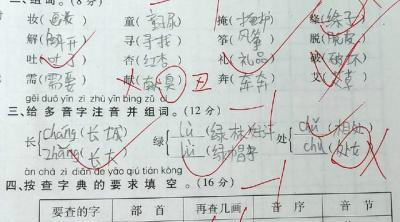 二、组词。(8分)
妆(画妆) 童(童尿) 掩(掩护)
解(解开) 寻(寻找) 筝(风筝) 脱(脱皮)
吐(吐丁) 杏(红杏) 礼(礼品) 破(破坏)
需(需要) 献(献臭) 丑 奔(奔奔) 艾(艾草)
gěi duō yīn zì zhù yīn bìng zǔ cí
三、给多音字注音并组词。(12分)
cháng(长城)
长 绿 lǜ(绿 处 chǔ(相处)
zhǎng(长大) lù(绿帽子) chù(处女)
àn chá zì diǎn de yāo qiú tián kòng
四、按查字典的要求填空。(16分)
要查的字 部首 再查几画 音序 音节